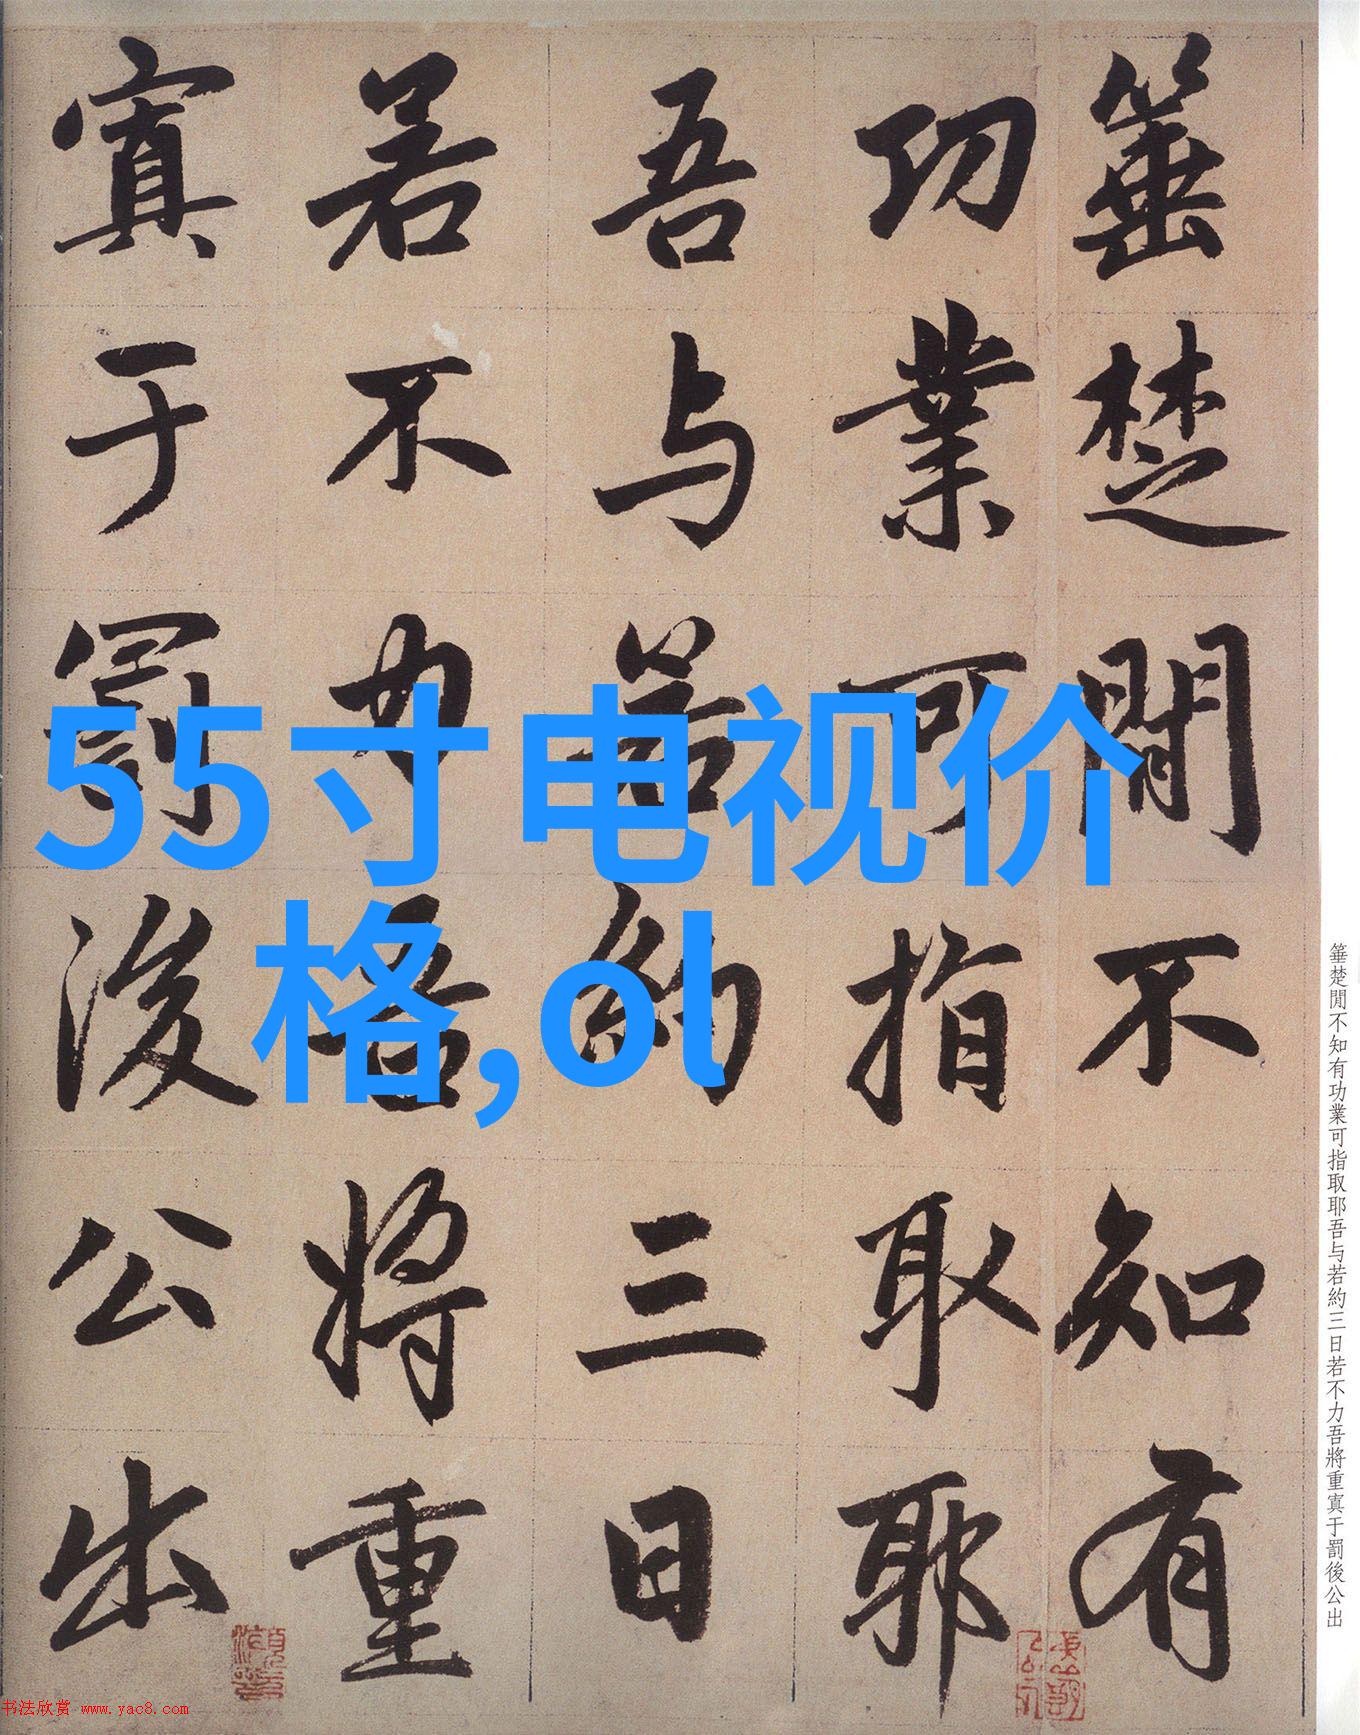 箠楚閒不知有
功業可指取耶
吾与若約三日
若不力吾將重
寘于罰後公出
55寸电视价
格,ol
箠楚閒不知有功業可指取耶吾与若約三日若不力吾將重寘于罰後公出
书法欣赏 www.yac8.com